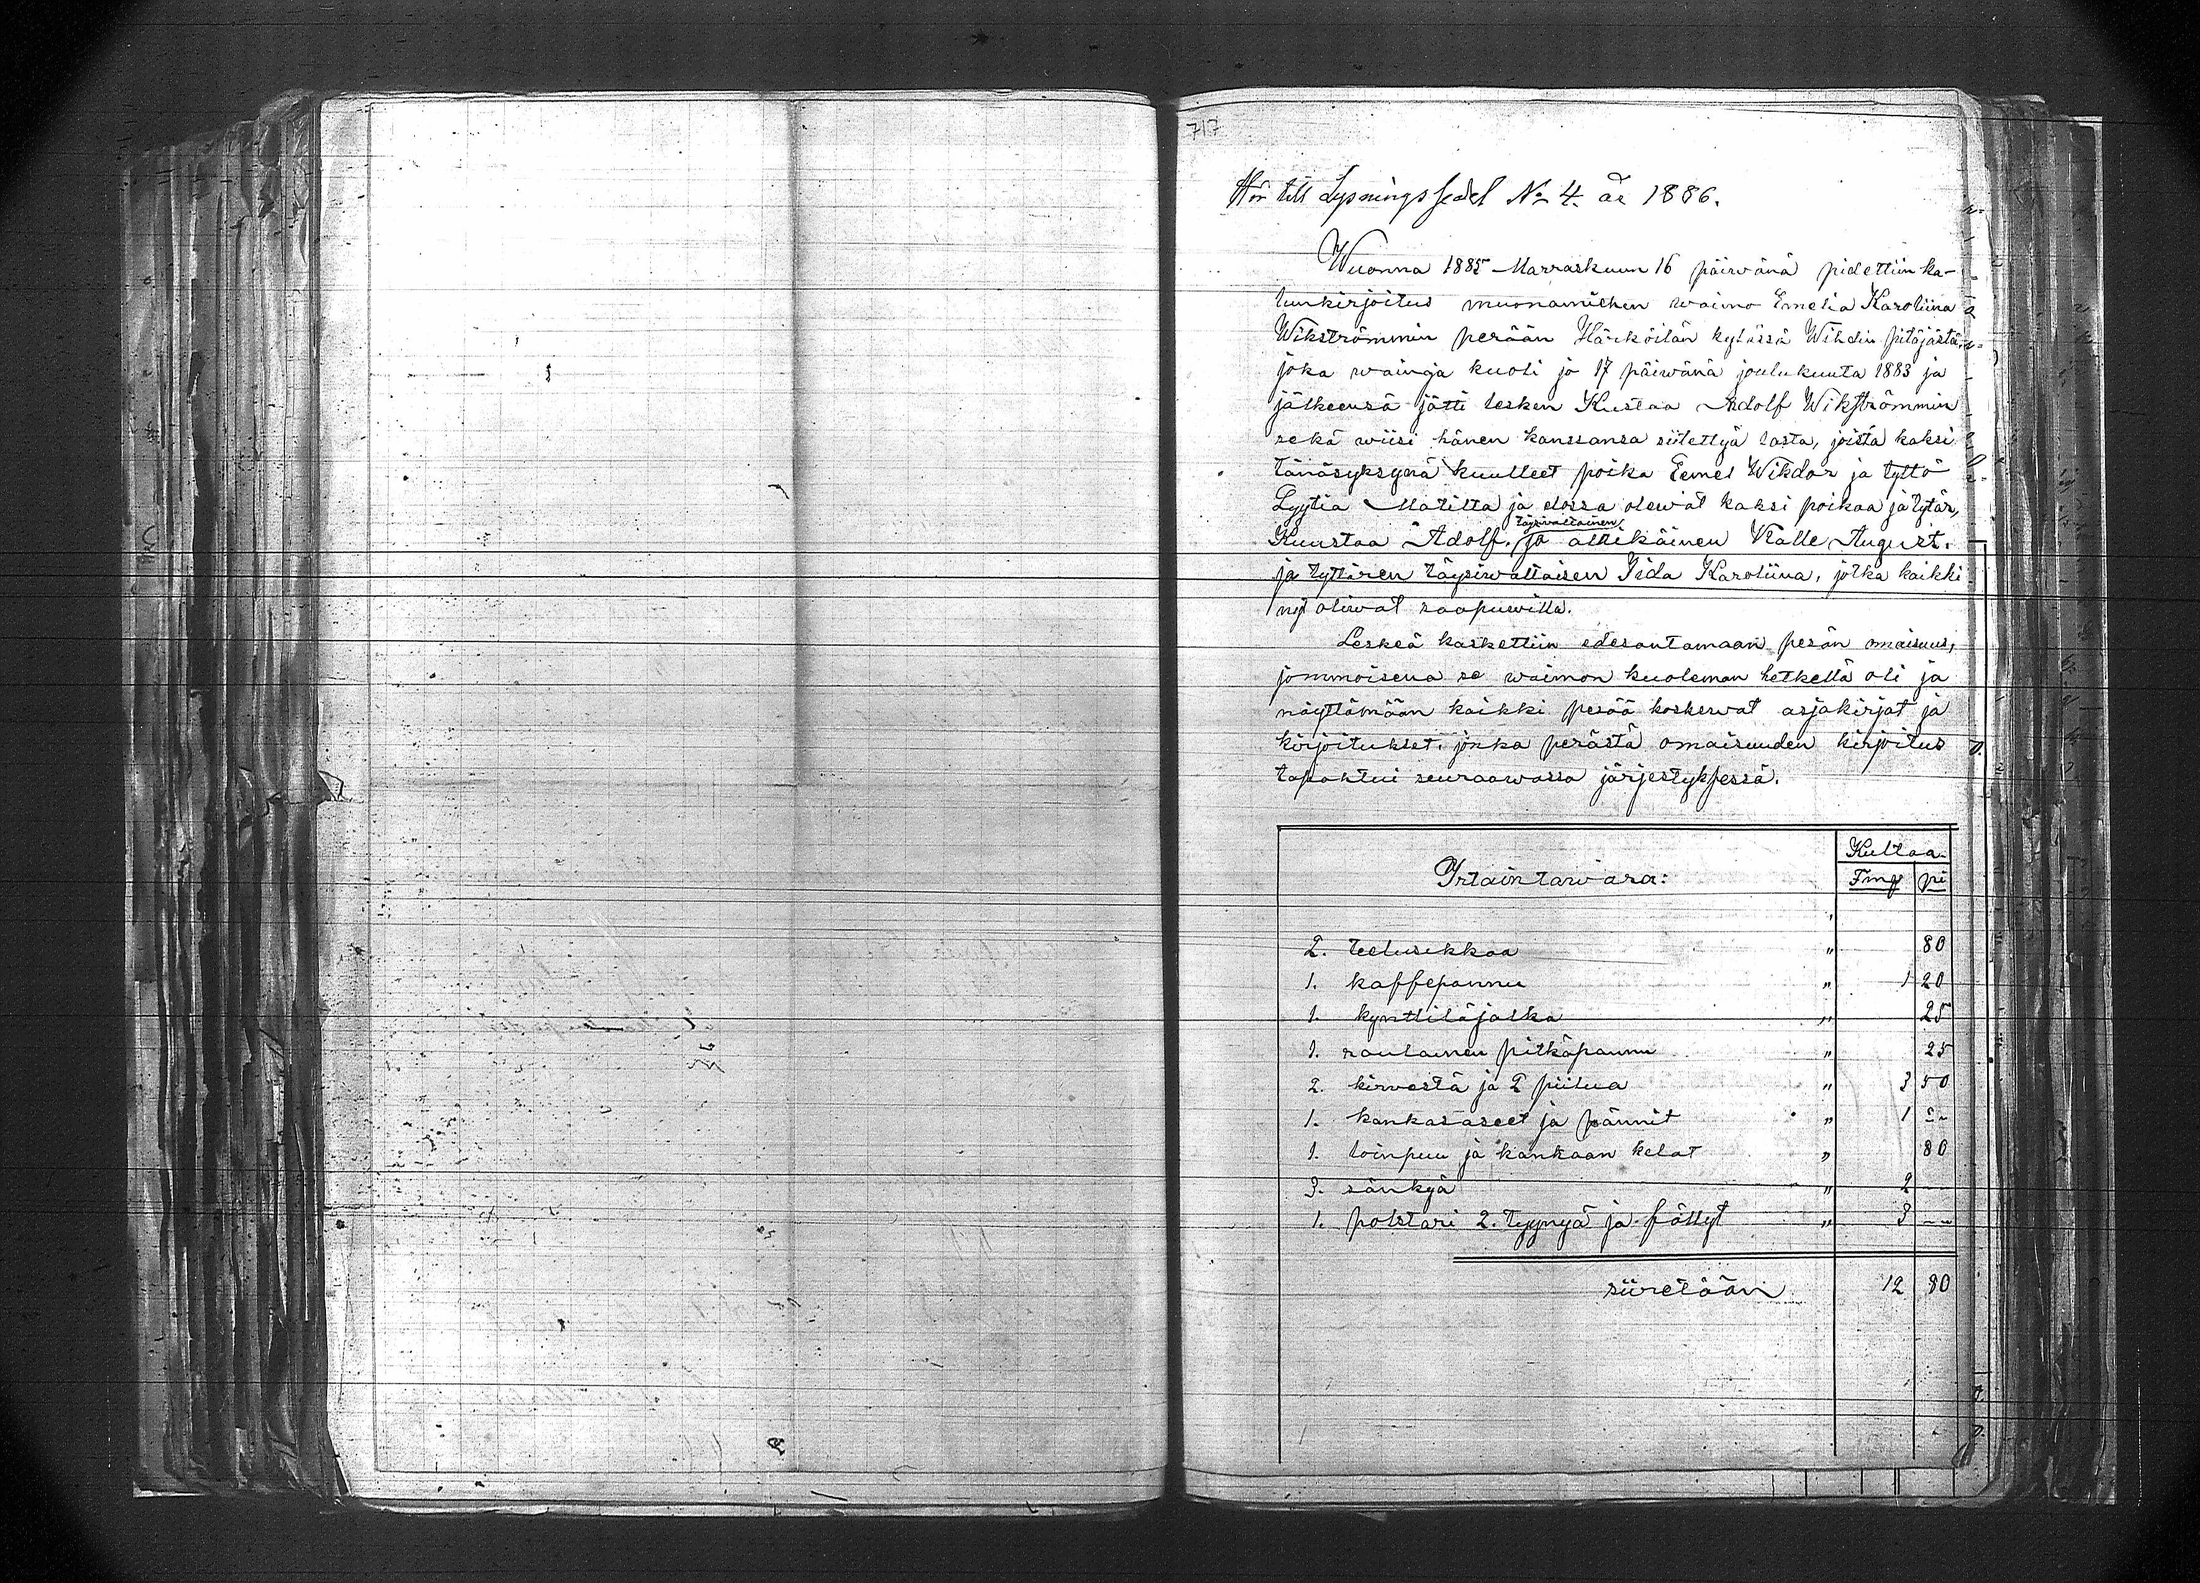 717
Hör till Lysningssedel No 4. år 1886.
Wuonna 1885 Marraskuun 16 päiwänä pidettiin ka-
lunkirjoitus muonamiehen waimo Emelia Karoliina
Wikströmmin perään Härköilän kylässä Wihdin pitäjästä,
joka wainaja kuoli jo 17 päiwänä joulukuuta 1883 ja
jälkeensä jätti lesken Kustaa Adolf Wikströmmin
sekä wiisi hänen kanssansa siitettyä lasta, joista kaksi
tänäsyksynä kuulleet poika Eemel Wihdor ja tyttö
Lyytia Matilta ja elossa olewat kaksi poikaa ja tytär,
täysivaltainen
Kuustaa Adolf. ja alaikäinen Kalle August.
ja tyttären täysiwaltaisen Iida Karoliina, jotka kaikki
nyt oliwat saapuwilla.
Leskeä kaskettiin edesantamaan pesän omaisuus,
jommoisena se waimon kuoleman hetkellä oli ja
näyttämään kaikki pesää koskewat asjakirjat ja
kirjoitukset, jonka perästä omaisuuden kirjoitus
tapahtui seuraawassa järjestyksessä.
Kultaa
Irtaintawara: Fmg pi
2. teelusikkaa " 80
1. kaffepannu " 1 20
1. kynttiläjalka " 25
1. rautainen pitkäpannu " 25
2. kirvestä ja 2 piilua " 3 50
1. kankasaseet ja pännit " 1 --
1. loinpuu ja kankaan kelat " 80
3. sänkyä " 2 --
1. polstari 2. tyynyä ja fällyt " 3 --
siiretään 12 80